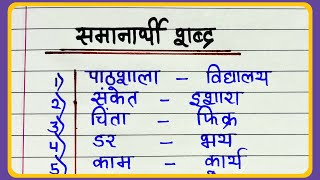 समानार्थी शब्द
1) पाठशाला – विद्यालय
2) संकेत – इशारा
3) चिंता – फिक्र
4) डर – भय
5) काम – कार्य